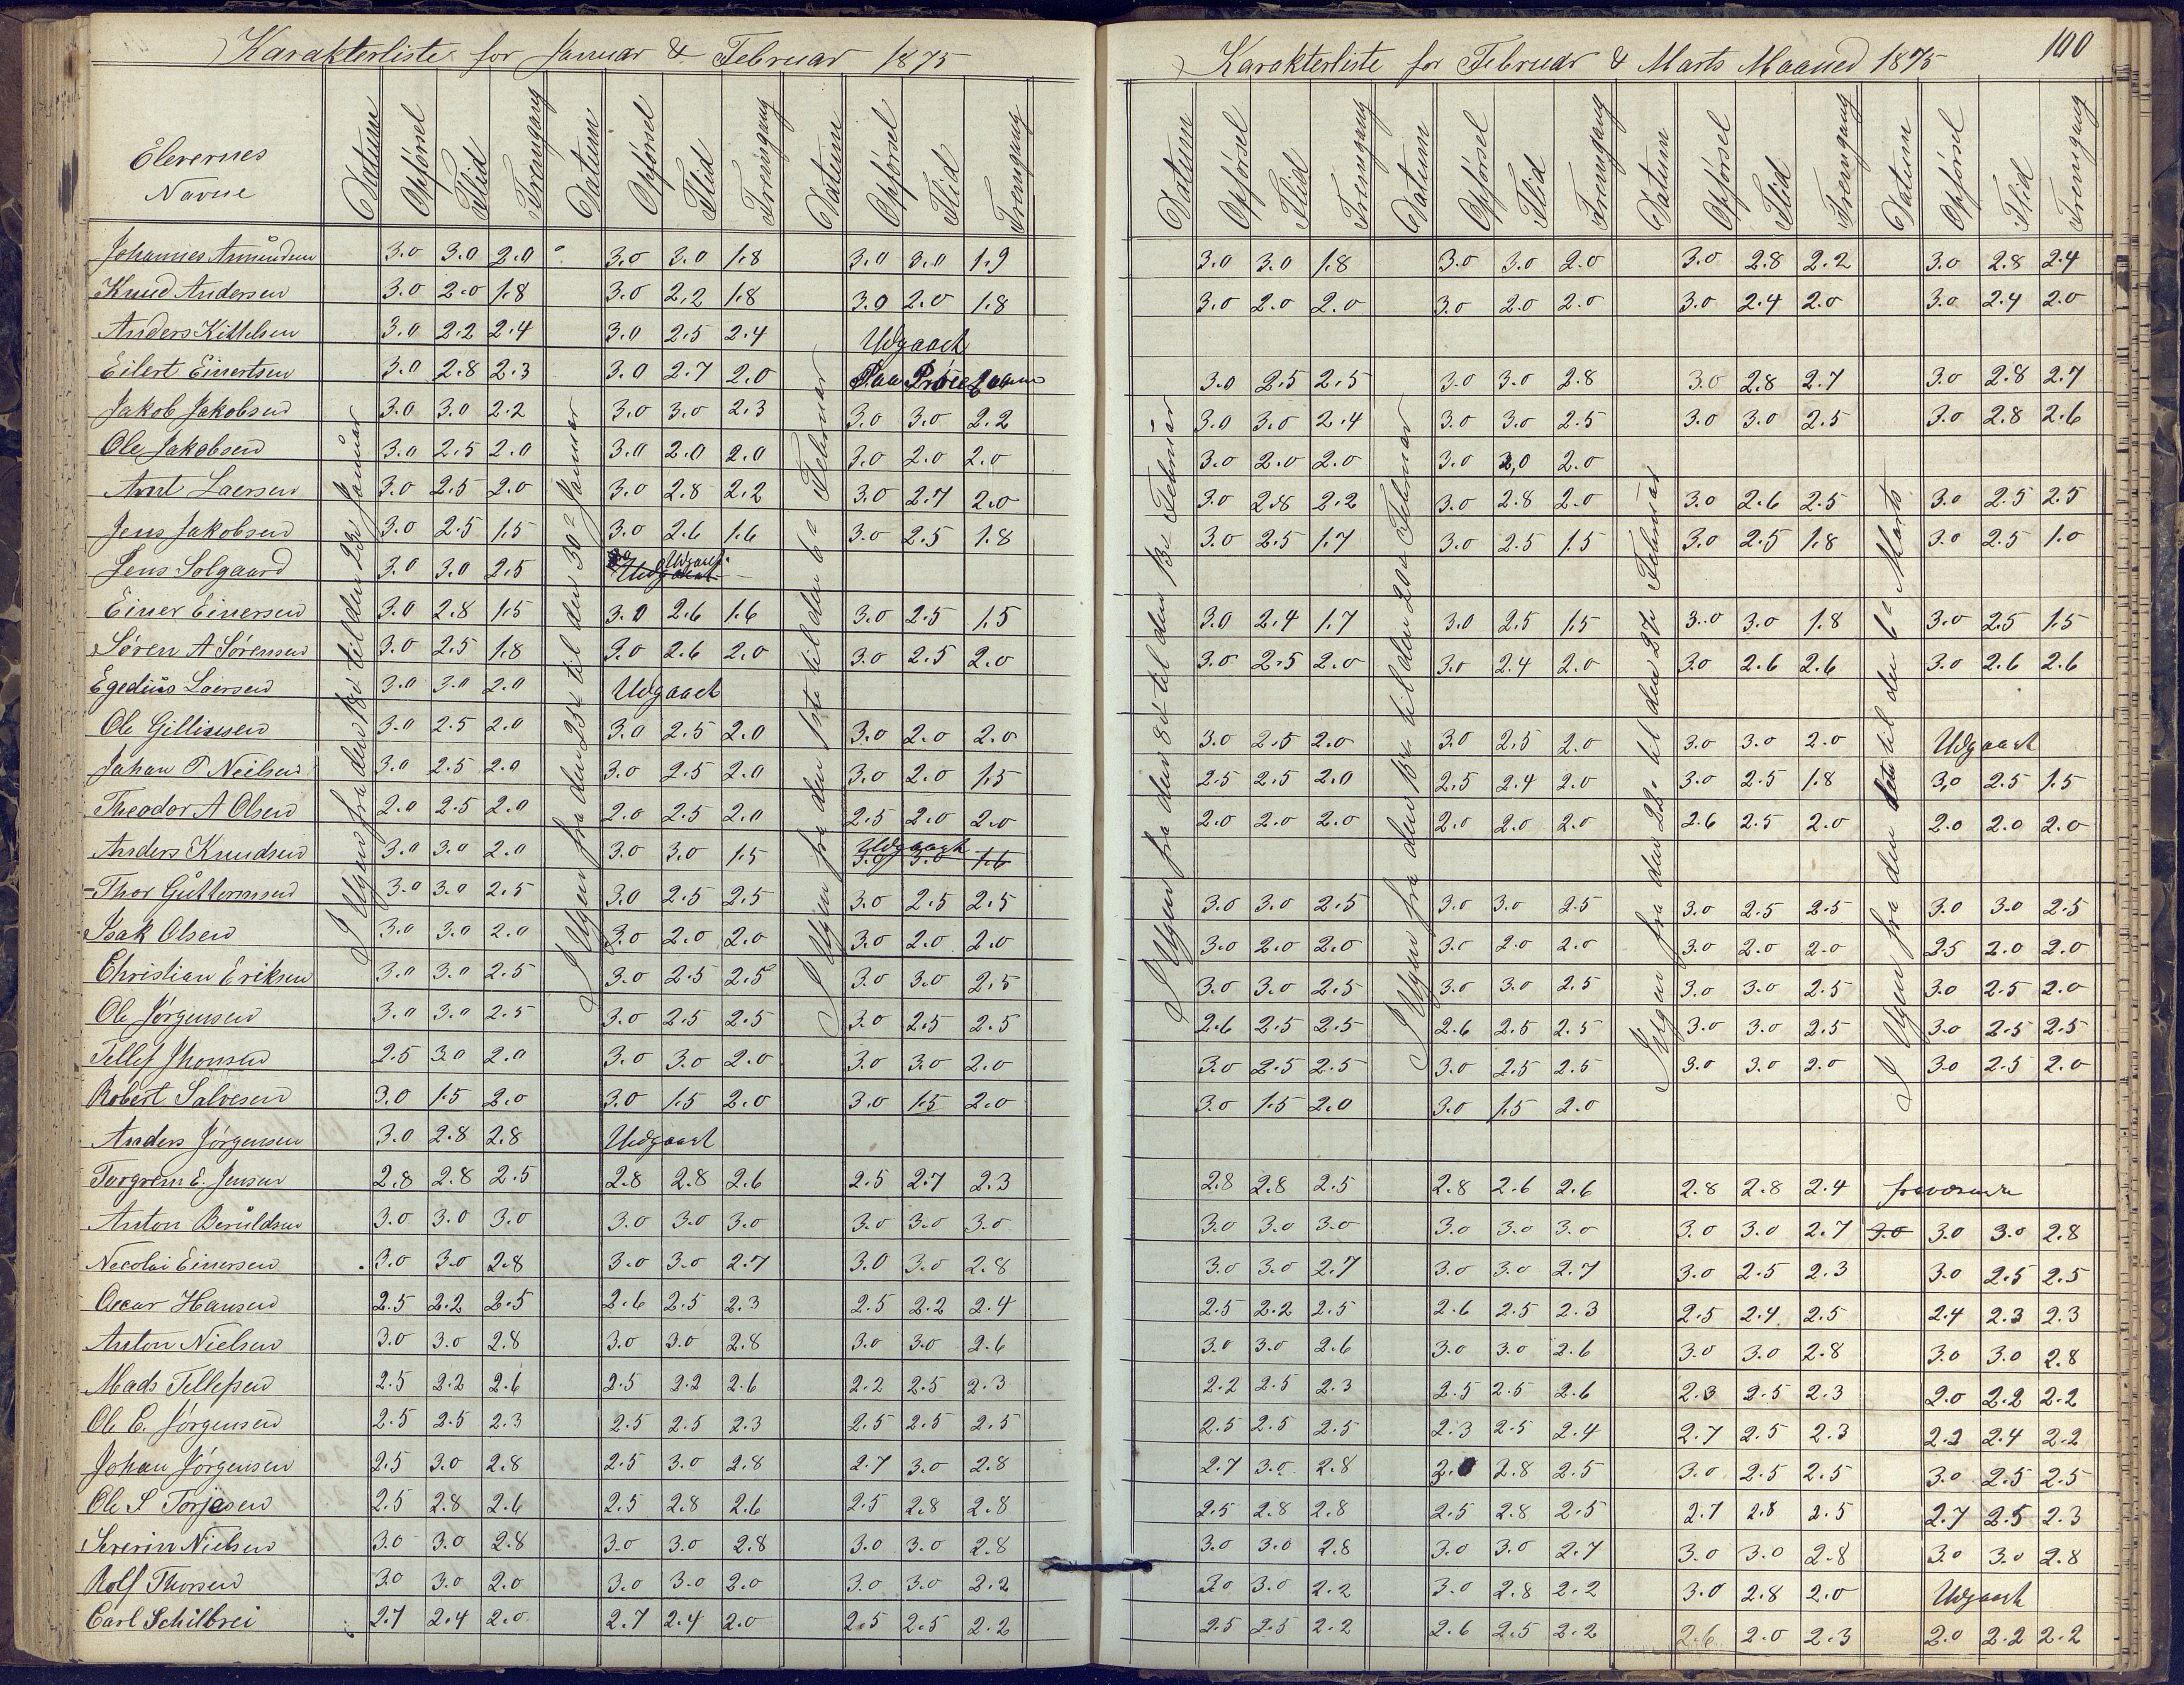 Karakterliste for Januar & Februar 1875
Elevernes Navne Datum Opførsel Flid Fremgang Datum Opførsel Flid Fremgang Datum Opførsel Flid Fremgang
I Ugen fra den 18de til den 23de Januar
I Ugen fra den 25de til den 30te Januar
I Ugen fra den 1ste til den 6te Februar
Johannes Amundsen 3.0 3.0 2.0 3.0 3.0 1.8 3.0 3.0 1.9
Knud Andersen 3.0 2.0 1.8 3.0 2.2 1.8 3.0 2.0 1.8
Anders Kittelsen 3.0 2.2 2.4 3.0 2.5 2.4 Udgaaet
Eilert Einertsen 3.0 2.8 2.3 3.0 2.7 2.0 Paa
Jakob Jakobsen 3.0 3.0 2.2 3.0 3.0 2.3 3.0 3.0 2.2
Ole Jakobsen 3.0 2.5 2.0 3.0 2.0 2.0 3.0 2.0 2.0
Arnt Laersen 3.0 2.5 2.0 3.0 2.8 2.2 3.0 2.7 2.0
Jens Jakobsen 3.0 2.5 1.5 3.0 2.6 1.6 3.0 2.5 1.8
Jens Solgaard 3.0 3.0 2.5 Udgaaet
Einer Einersen 3.0 2.8 1.5 3.0 2.6 1.6 3.0 2.5 1.5
Søren A Sørensen 3.0 2.5 1.8 3.0 2.6 2.0 3.0 2.5 2.0
Egedius Laersen 3.0 3.0 2.0 Udgaaet
Ole Gillisesen 3.0 2.5 2.0 3.0 2.5 2.0 3.0 2.0 2.0
Johan T Neilsen 3.0 2.5 2.0 3.0 2.5 2.0 3.0 2.0 1.5
Theodor A Olsen 2.0 2.5 2.0 2.0 2.5 2.0 2.5 2.0 2.0
Anders Knudsen 3.0 3.0 2.0 3.0 3.0 1.5 Udgaaet 3.0 3.0 1.6
Thor Guttormsen 3.0 3.0 2.5 3.0 2.5 2.5 3.0 2.5 2.5
Isak Olsen 3.0 3.0 2.0 3.0 2.0 2.0 3.0 2.0 2.0
Christian Eriksen 3.0 3.0 2.5 3.0 2.5 2.5 3.0 3.0 2.5
Ole Jørgensen 3.0 3.0 2.5 3.0 2.5 2.5 3.0 2.5 2.5
Tellef Jhonsen 2.5 3.0 2.0 3.0 3.0 2.0 3.0 3.0 2.0
Robert Salvesen 3.0 1.5 2.0 3.0 1.5 2.0 3.0 1.5 2.0
Anders Jørgensen 3.0 2.8 2.8 Udgaaet
Torgrem E. Jensen 2.8 2.8 2.5 2.8 2.8 2.6 2.5 2.7 2.3
Anton Beruldsen 3.0 3.0 3.0 3.0 3.0 3.0 3.0 3.0 3.0
Necolai Einersen 3.0 3.0 2.8 3.0 3.0 2.7 3.0 3.0 2.8
Oscar Hansen 2.5 2.2 2.5 2.6 2.5 2.3 2.5 2.2 2.4
Anton Nielsen 3.0 3.0 2.8 3.0 3.0 2.8 3.0 3.0 2.6
Mads Tellefsen 2.5 2.2 2.6 2.5 2.2 2.6 2.2 2.5 2.3
Ole C. Jørgensen 2.5 2.5 2.3 2.5 2.5 2.3 2.5 2.5 2.5
Johan Jörgensen 2.5 3.0 2.8 2.5 3.0 2.8 2.7 3.0 2.8
Ole S Torjesen 2.5 2.8 2.6 2.5 2.8 2.6 2.5 2.8 2.8
Severin Nielsen 3.0 3.0 2.8 3.0 3.0 2.8 3.0 3.0 2.8
Rolf Thorsen 3.0 3.0 2.0 3.0 3.0 2.0 3.0 3.0 2.2
Carl Schilbrei 2.7 2.4 2.0 2.7 2.4 2.0 2.5 2.5 2.2
Karakterliste for Februar & Marts Maaned 1875 100
Datum Opførsel Flid Fremgang Datum Opførsel Flid Fremgang Datum Opførsel Flid Fremgang Datum Opførsel Flid Fremgang
I Ugen fra den 8de til den 13de Februar
I Ugen fra den 15de til den 20de Februar
I Ugen fra den 22de til den 27de Februar
I Ugen fra den 1ste til den 6te Marts
3.0 3.0 1.8 3.0 3.0 2.0 3.0 2.8 2.2 3.0 2.8 2.4
3.0 2.0 2.0 3.0 2.0 2.0 3.0 2.4 2.0 3.0 2.4 2.0
3.0 2.5 2.5 3.0 3.0 2.8 3.0 2.8 2.7 3.0 2.8 2.7
3.0 3.0 2.4 3.0 3.0 2.5 3.0 3.0 2.5 3.0 2.8 2.6
3.0 2.0 2.0 3.0 2,0 2.0
3.0 2.8 2.2 3.0 2.8 2.0 3.0 2.6 2.5 3.0 2.5 2.5
3.0 2.5 1.7 3.0 2.5 1.5 3.0 2.5 1.8 3.0 2.5 1.0
3.0 2.4 1.7 3.0 2.5 1.5 3.0 3.0 1.8 3.0 2.5 1.5
3.0 2.5 2.0 3.0 2.4 2.0 3.0 2.6 2.6 3.0 2.6 2.6
3.0 2.5 2.0 3.0 2.5 2.0 3.0 3.0 2.0 Udgaaet
2.5 2.5 2.0 2.5 2.4 2.0 3.0 2.5 1.8 3,0 2.5 1.5
2.0 2.0 2.0 2.0 2.0 2.0 2.6 2.5 2.0 2.0 2.0 2.0
3.0 3.0 2.5 3.0 3.0 2.5 3.0 2.5 2.5 3.0 3.0 2.5
3.0 2.0 2.0 3.0 2.0 2.0 3.0 2.0 2.0 2.5 2.0 2.0
3.0 3.0 2.5 3.0 3.0 2.5 3.0 3.0 2.5 3.0 2.5 2.0
2.6 2.5 2.5 2.6 2.5 2.5 3.0 3.0 2.5 3.0 2.5 2.5
3.0 2.5 2.5 3.0 2.5 2.5 3.0 3.0 2.0 3.0 2.5 2.0
3.0 1.5 2.0 3.0 1.5 2.0
2.8 2.8 2.5 2.8 2.6 2.6 2.8 2.8 2.4 fraværende
3.0 3.0 3.0 3.0 3.0 3.0 3.0 3.0 2.7 3.0 3.0 3.0 2.8
3.0 3.0 2.7 3.0 3.0 2.7 3.0 2.5 2.3 3.0 2.5 2.5
2.5 2.2 2.5 2.6 2.5 2.3 2.5 2.4 2.5 2.4 2.3 2.3
3.0 3.0 2.6 3.0 3.0 2.6 3.0 3.0 2.8 3.0 3.0 2.8
2.2 2.5 2.3 2.5 2.5 2.6 2.3 2.5 2.3 2.0 2.2 2.2
2.5 2.5 2.5 2.3 2.5 2.4 2.7 2.5 2.3 2.2 2.4 2.2
2.7 3.0 2.8 2.0 2.8 2.5 3.0 2.5 2.5 3.0 2.5 2.5
2.5 2.8 2.8 2.5 2.8 2.5 2.7 2.8 2.5 2.7 2.5 2.3
3.0 3.0 2.8 3.0 3.0 2.7 3.0 3.0 2.8 3.0 3.0 2.8
3.0 3.0 2.2 3.0 2.8 2.2 3.0 2.8 2.0 Udgaaet
2.5 2.5 2.2 2.6 2.5 2.2 2.6 2.0 2.3 2.0 2.2 2.2